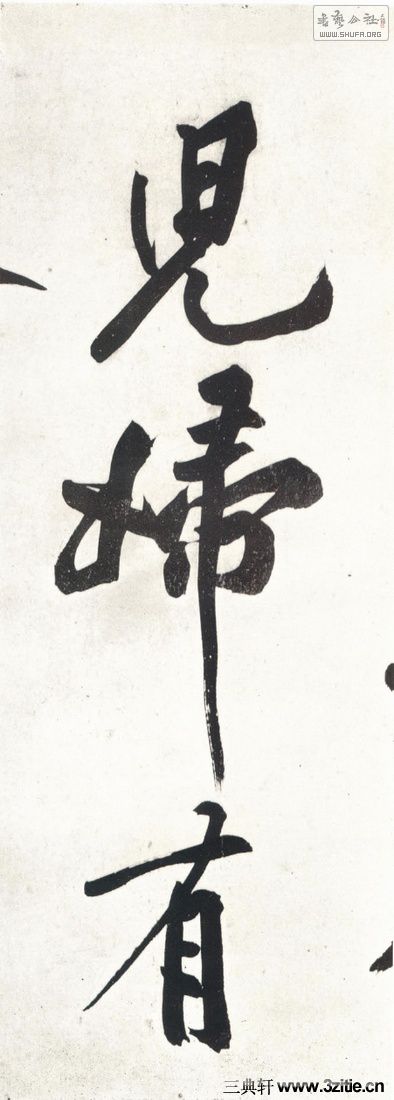 書藝公社
WWW.SHUFA.ORG
兒婦有
三典轩 www.3zitie.cn